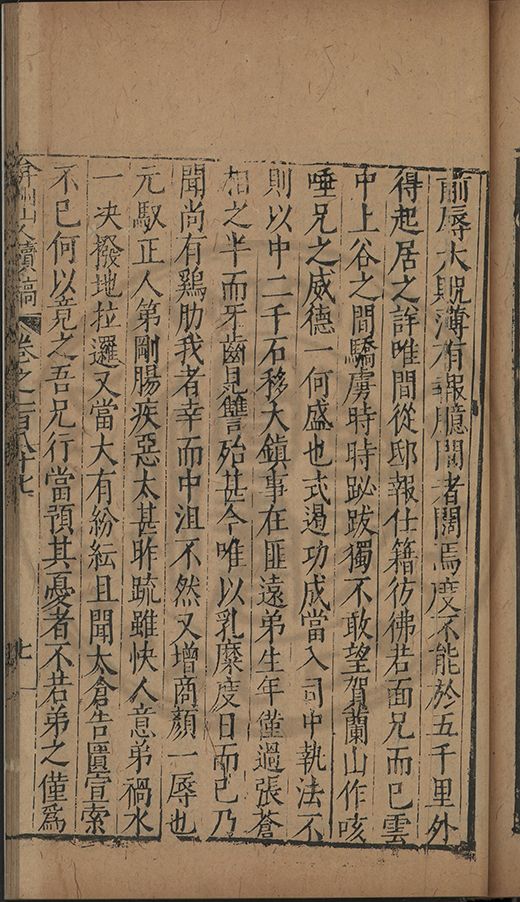 前辱大貺薄有報牘聞者闊焉度不能於五千里外
得起居之詳唯間從邸報仕籍彷彿若面兄而已雲
中上谷之間驕虜時時跳跋獨不敢望賀蘭山作咳
唾兄之威德一何盛也式遏功成當入司中執法不
則以中二千石移大鎮事在匪遠弟生年僅過張蒼
相之半而牙齒見讐殆甚今唯以乳糜度日而已乃
聞尚有鷄肋我者幸而中沮不然又增商顏一辱也
元馭正人第剛腸疾惡太甚昨疏雖快人意弟禍水
一决撥地拉邏又當大有紛紜且聞太倉告匱宣索
不已何以竟之吾兄行當預其憂者不若弟之僅爲
弇州山人續稿 卷之一百八十七 七